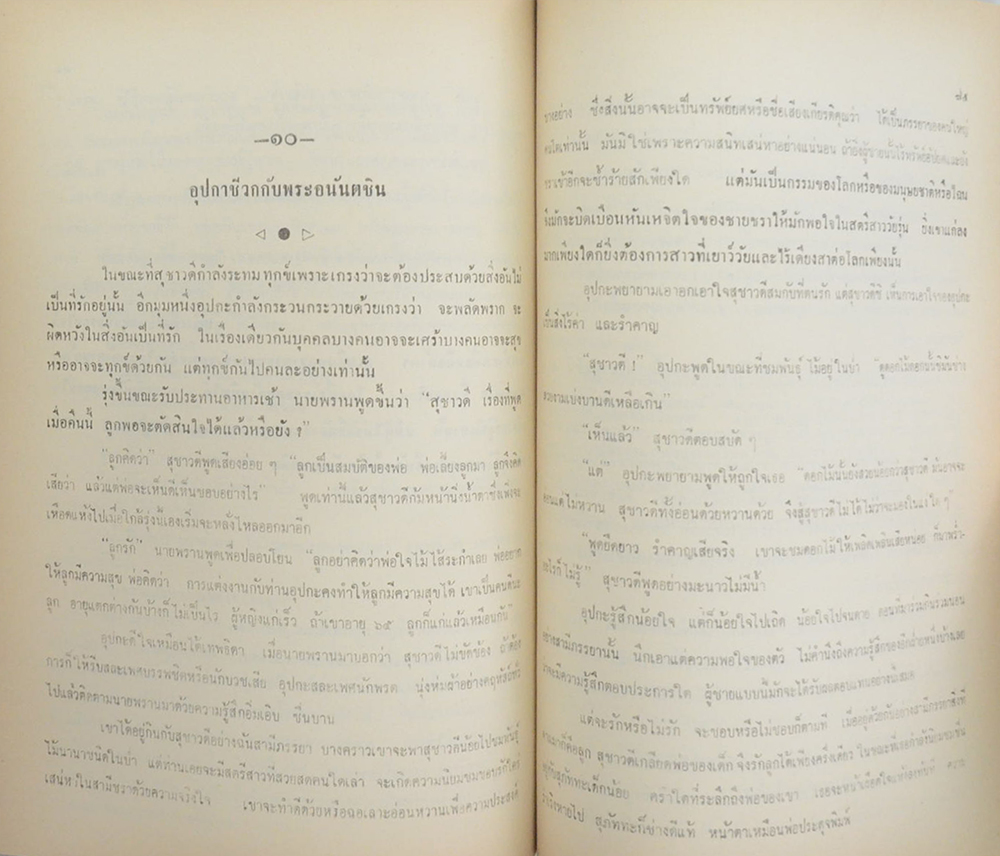 —๑๐—
อุปกาชีวกกับพระอนันตชิน
ในขณะที่สุชาวดีกำลังระทมทุกข์เพราะเกรงว่าจะต้องประสบด้วยสิ่งอันไม่
เป็นที่รักอยู่นั้น อีกมุมหนึ่งอุปกะกำลังกระวนกระวายด้วยเกรงว่า จะพลัดพราก จะ
ผิดหวังในสิ่งอันเป็นที่รัก ในเรื่องเดียวกันบุคคลบางคนอาจจะเศร้าบางคนอาจจะสุข
หรืออาจจะทุกข์ด้วยกัน แต่ทุกข์กันไปคนละอย่างเท่านั้น
รุ่งขึ้นขณะรับประทานอาหารเช้า นายพรานพูดขึ้นว่า "สุชาวดี เรื่องที่พูด
เมื่อคืนนี้ ลูกพอจะตัดสินใจได้แล้วหรือยัง ?"
"ลูกคิดว่า" สุชาวดีพูดเสียงอ่อย ๆ "ลูกเป็นสมบัติของพ่อ พ่อเลี้ยงลูกมา ลูกจึงคิด
เสียว่า แล้วแต่พ่อจะเห็นดีเห็นชอบอย่างไร" พูดเท่านี้แล้วสุชาวดีก้มหน้านิ่งน้ำตาซึ่งเพิ่งจะ
เหือดแห้งไปเมื่อใกล้รุ่งนี้เองเริ่มจะหลั่งไหลออกมาอีก
"ลูกรัก" นายพรานพูดเพื่อปลอบโยน "ลูกอย่าคิดว่าพ่อใจไม้ไส้ระกำเลย พ่ออยาก
ให้ลูกมีความสุข พ่อคิดว่า การแต่งงานกับท่านอุปกะคงทำให้ลูกมีความสุขได้ เขาเป็นคนดีนะ
ลูก อายุแตกต่างกันบ้างก็ไม่เป็นไร ผู้หญิงแก่เร็ว ถ้าเขาอายุ ๖๕ ลูกก็แก่แล้วเหมือนกัน"
อุปกะดีใจเหมือนได้เทพธิดา เมื่อนายพรานมาบอกว่า สุชาวดีไม่ขัดข้อง ถ้าต้อง
การก็ให้รีบสละเพศบรรพชิตหรือนักบวชเสีย อุปกะสละเพศนักพรต นุ่งห่มผ้าอย่างคฤหัสถ์ทั่ว
ไปแล้วติดตามนายพรานมาด้วยความรู้สึกอิ่มเอิบ ชื่นบาน
เขาได้อยู่กินกับสุชาวดีอย่างฉันสามีภรรยา บางคราวเขาจะพาสุชาวดีน้อยไปชมพันธุ์
ไม้นานาชนิดในป่า แต่ท่านเอยจะมีสตรีสาวที่สวยสดคนใดเล่า จะเกิดความนิยมชมชอบรักใคร่
เสน่หาในสามีชราด้วยความจริงใจ เขาจะทำดีด้วยหรือฉอเลาะอ่อนหวานเพื่อความประสงค์
๘๑
บางอย่าง ซึ่งสิ่งนั้นอาจจะเป็นทรัพย์ยศหรือชื่อเสียงเกียรติคุณว่า ได้เป็นภรรยาของคนใหญ่
คนโตเท่านั้น มันมิใช่เพราะความสนิทเสน่หาอย่างแน่นอน ถ้ายิ่งผู้ชายนั้นไร้ทรัพย์อัปยศและยัง
ชราเข้าอีกจะช้ำร้ายสักเพียงใด แต่มันเป็นกรรมของโลกหรือของมนุษยชาติหรือไฉน
จึงมักจะบิดเบือนหันเหจิตใจของชายชราให้มักพอใจในสตรีสาววัยรุ่น ยิ่งเขาแก่ลง
มากเพียงใดก็ยิ่งต้องการสาวที่เยาว์วัยและไร้เดียงสาต่อโลกเพียงนั้น
อุปกะพยายามเอาอกเอาใจสุชาวดีสมกับที่ตนรัก แต่สุชาวดีซิ เห็นการเอาใจของอุปกะ
เป็นสิ่งไร้ค่า และรำคาญ
"สุชาวดี !" อุปกะพูดในขณะที่ชมพันธุ์ไม้อยู่ในป่า "ดูดอกไม้ดอกนี้ซิมันช่าง
สวยงามเบ่งบานดีเหลือเกิน"
"เห็นแล้ว" สุชาวดีตอบสบัด ๆ
"แต่" อุปกะพยายามพูดให้ถูกใจเธอ "ดอกไม้นั้นยังสวยน้อยกว่าสุชาวดี มันอาจจะ
อ่อนแต่ไม่หวาน สุชาวดีทั้งอ่อนด้วยหวานด้วย จึงสู้สุชาวดีไม่ได้ไม่ว่าจะมองในแง่ใด ๆ"
"พูดยืดยาว รำคาญเสียจริง เขาจะชมดอกไม้ให้เพลิดเพลินเสียหน่อย ก็มาพร่ำ
อะไรก็ไม่รู้" สุชาวดีพูดอย่างมะนาวไม่มีน้ำ
อุปกะรู้สึกน้อยใจ แต่ก็น้อยใจไปเถิด น้อยใจไปจนตาย ตอนที่มาร่วมกินร่วมนอน
อย่างสามีภรรยานั้น นึกเอาแต่ความพอใจของตัว ไม่คำนึงถึงความรู้สึกของอีกฝ่ายหนึ่งบ้างเลย
ว่าจะมีความรู้สึกตอบประการใด ผู้ชายแบบนี้มักจะได้รับผลตอบแทนอย่างนี้เสมอ
แต่จะรักหรือไม่รัก จะชอบหรือไม่ชอบก็ตามที เมื่ออยู่ด้วยกันอย่างสามีภรรยาสิ่งที่
ตามมาก็คือลูก สุชาวดีเกลียดพ่อของเด็ก จึงรักลูกได้เพียงครึ่งเดียว ในขณะที่เธอกำลังนิยมชมชื่น
อยู่กับสุภัททะเด็กน้อย คราใดที่ระลึกถึงพ่อของเขา
ร่าเริงหายไป สุภัททะก็ช่างดีแท้ หน้าตาเหมือนพ่อประดุจพิมพ์